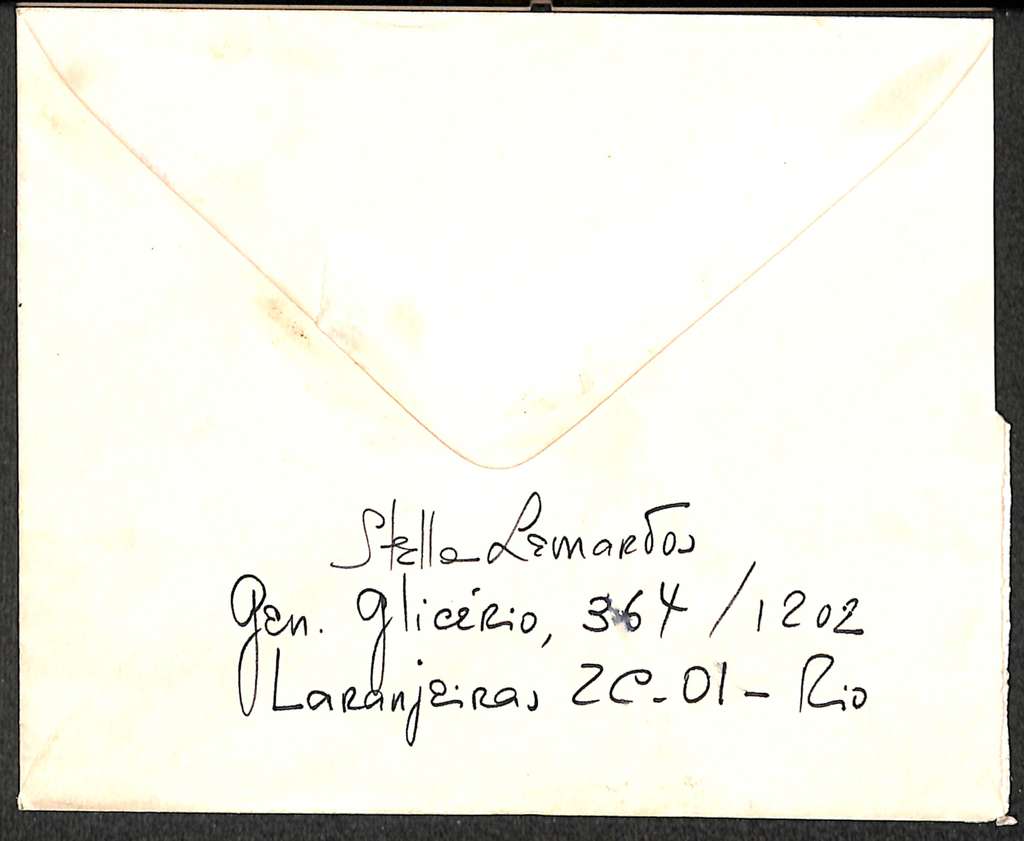 Stella Leonardos
Gen. Glicério, 364/1202
Laranjeiras ZC-01 - Rio